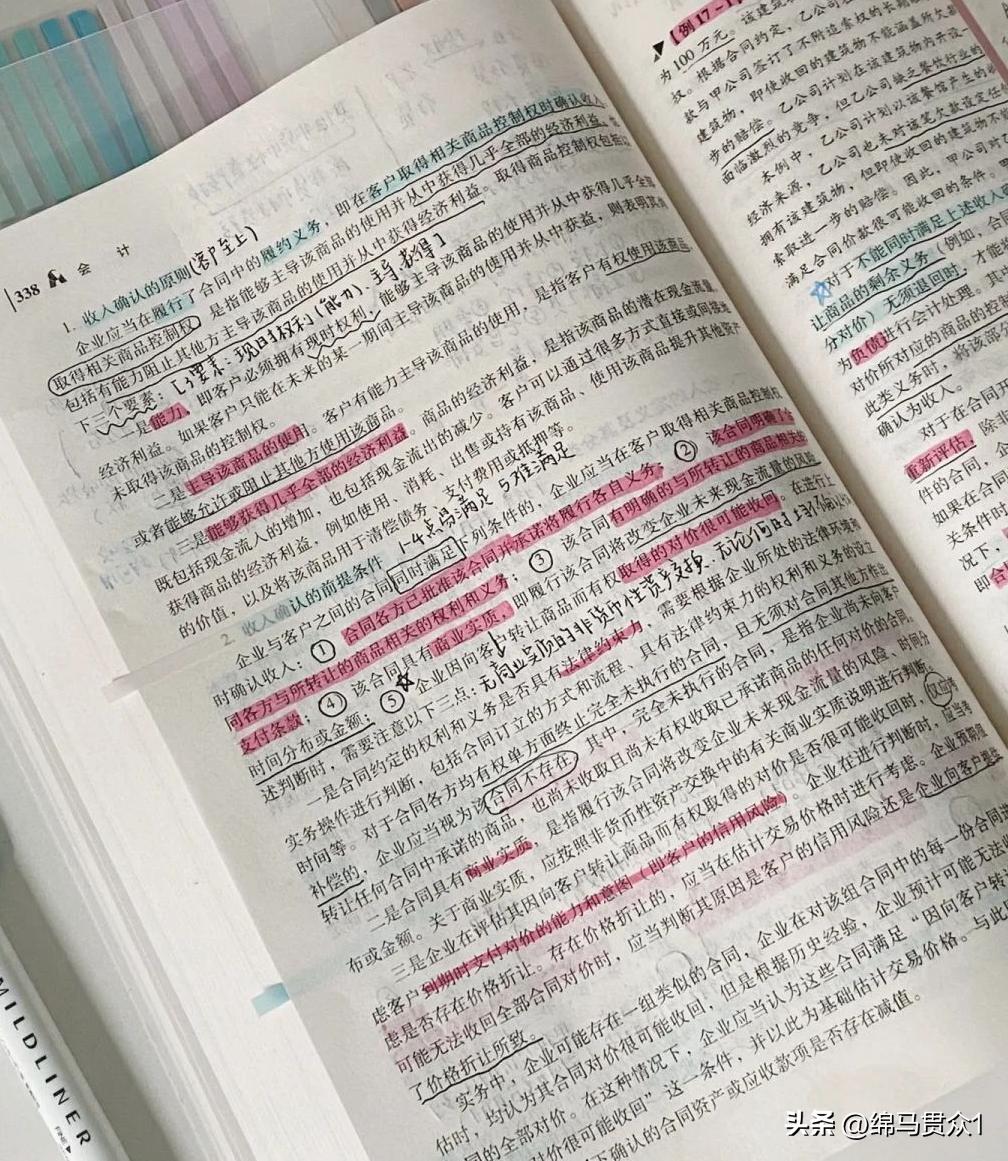 338 会 计
1. 收入确认的原则(客户至上)
企业应当在履行了合同中的履约义务，即在客户取得相关商品控制权时确认收入。
取得相关商品控制权，是指能够主导该商品的使用并从中获得几乎全部的经济利益，
包括有能力阻止其他方主导该商品的使用并从中获得经济利益。取得商品控制权包括以
下三个要素：[3要素：现时权利(能力)、主导、获得]
一是能力，即客户必须拥有现时权利，能够主导该商品的使用并从中获得几乎全部
经济利益。如果客户只能在未来的某一期间主导该商品的使用并从中获益，则表明其尚
未取得该商品的控制权。
二是主导该商品的使用。客户有能力主导该商品的使用，是指客户有权使用该商品，
或者能够允许或阻止其他方使用该商品。
三是能够获得几乎全部的经济利益。商品的经济利益，是指该商品的潜在现金流量，
既包括现金流入的增加，也包括现金流出的减少。客户可以通过很多方式直接或间接地
获得商品的经济利益，例如使用、消耗、出售或持有该商品、使用该商品提升其他资产
的价值，以及将该商品用于清偿债务、支付费用或抵押等。
2. 收入确认的前提条件 1-4点易满足 5难满足
企业与客户之间的合同同时满足下列条件的，企业应当在客户取得相关商品控制权
时确认收入：①合同各方已批准该合同并承诺将履行各自义务；②该合同明确了合
同各方与所转让的商品相关的权利和义务；③该合同有明确的与所转让的商品相关的
支付条款；④该合同具有商业实质，即履行该合同将改变企业未来现金流量的风险、
时间分布或金额；⑤企业因向客户转让商品而有权取得的对价很可能收回。在进行上
述判断时，需要注意以下三点：无商业实质的非货币性资产交换，无论何时均不确认收入
一是合同约定的权利和义务是否具有法律约束力，需要根据企业所处的法律环境和
实务操作进行判断，包括合同订立的方式和流程、具有法律约束力的权利和义务的设立
时间等。对于合同各方均有权单方面终止完全未执行的合同，且无须对合同其他方作出
补偿的，企业应当视为该合同不存在。其中，完全未执行的合同，是指企业尚未向客户
转让任何合同中承诺的商品，也尚未收取且尚未有权收取已承诺商品的任何对价的合同。
二是合同具有商业实质，是指履行该合同将改变企业未来现金流量的风险、时间分
布或金额。关于商业实质，应按照非货币性资产交换中的有关商业实质说明进行判断。
三是企业在评估其因向客户转让商品而有权取得的对价是否很可能收回时，仅应考
虑客户到期时支付对价的能力和意图（即客户的信用风险）。企业在进行判断时，应当考
虑是否存在价格折让。存在价格折让的，应当在估计交易价格时进行考虑。企业预期
可能无法收回全部合同对价时，应当判断其原因是客户的信用风险还是企业向客户提供
了价格折让所致。
实务中，企业可能存在一组类似的合同，企业在对该组合同中的每一份合同
估时，均认为其合同对价很可能收回，但是根据历史经验，企业预计可能无法收
同的全部对价。在这种情况下，企业应当认为这些合同满足“因向客户转
对价很可能收回”这一条件，并以此为基础估计交易价格。与此
下确认的合同资产或应收款项是否存在减值。
【例17-1】
为100万元。该建筑物
根据合同约定，乙公司在
权。
款与甲公司签订了不附追索权的长期
建筑物，即使收回的建筑物不能涵盖所欠款
步的赔偿。乙公司计划在该建筑物内开设一
面临激烈的竞争，但乙公司缺乏餐饮行业的
本例中，乙公司计划以该餐馆产生的收
经济来源，乙公司也未对该笔欠款设定任
拥有该建筑物，但即使收回的建筑物不
索取进一步的赔偿。因此，甲公司对
满足合同价款很可能收回的条件。
对于不能同时满足上述收入
让商品的剩余义务（例如，
分对价）无须退回时，才能
为负债进行会计处理。其
对价所对应的商品的控
此类义务时，将该部
确认为收入。
对于在合同
重新评估，除
件的合同，
如果在合同
关条件时
况下，
即
MILDLINER
头条 @绵马贯众1